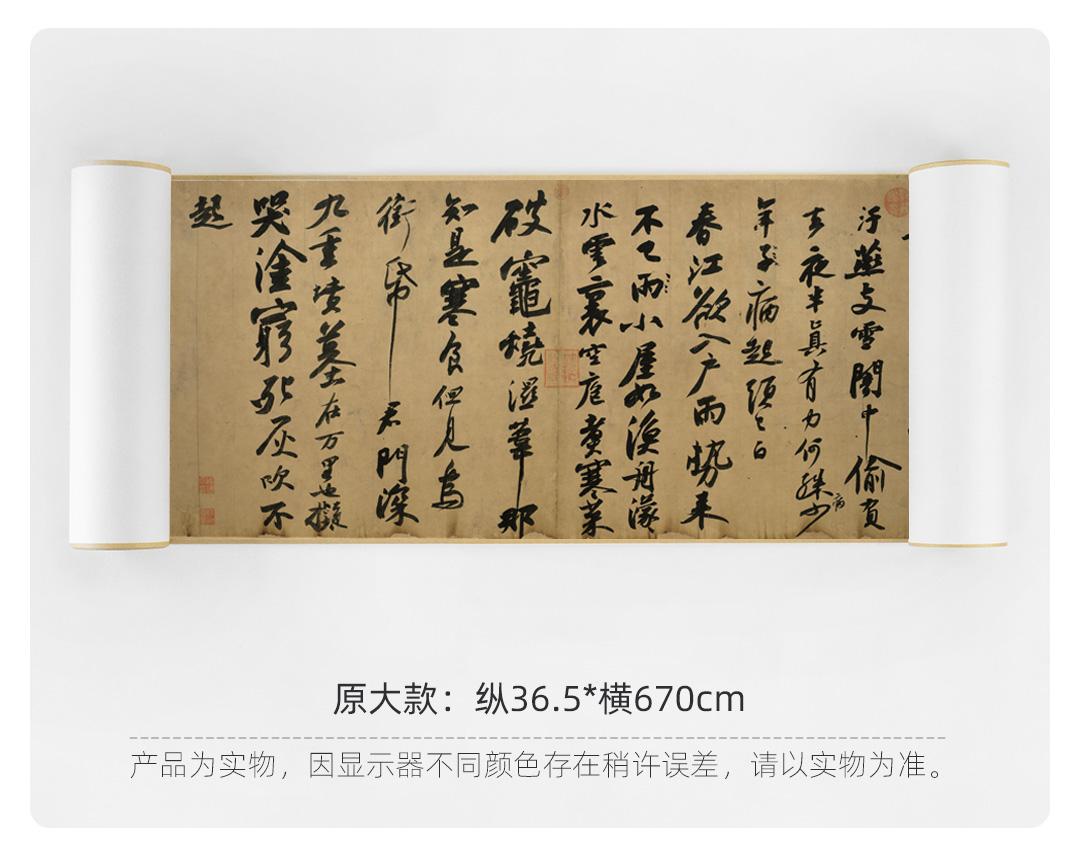 汙燕支雪闇中偷負
去夜半真有力何殊少
病
年子病起頭已白
春江欲入戶雨勢來
不已雨小屋如漁舟濛
水雲裏空庖煑寒菜
破竈燒濕葦那
知是寒食但見烏
銜帋君門深
九重墳墓在万里也擬
哭塗窮死灰吹不
起
原大款：纵36.5*横670cm
产品为实物，因显示器不同颜色存在稍许误差，请以实物为准。